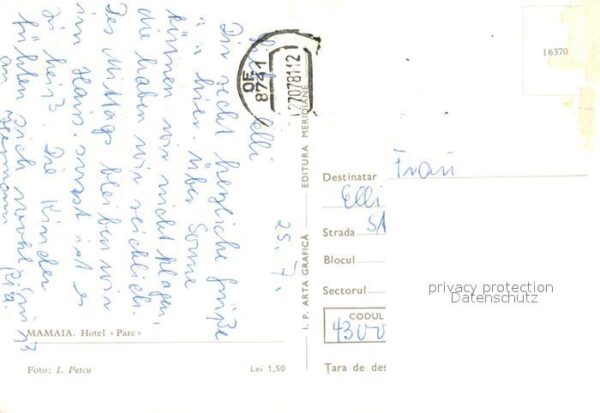 25. 7.
Elli
Dir recht herzliche Grüße
von hier. Über Sonne
können wir nicht klagen,
die haben wir reichlich.
Des Mittags bleiben wir
im Haus. sonst ist es
zu heiß. Die Kinder
fühlen sich wohl
OF
8741
27078112
MAMAIA. Hotel «Parc»
Foto: I. Petcu
Lei 1,50
I. P. ARTA GRAFICĂ
EDITURA MERIDIANE
16370
Destinatar Frau
Elli
Strada
Blocul
Sectorul
CODUL
4300
Țara de des
privacy protection
Datenschutz